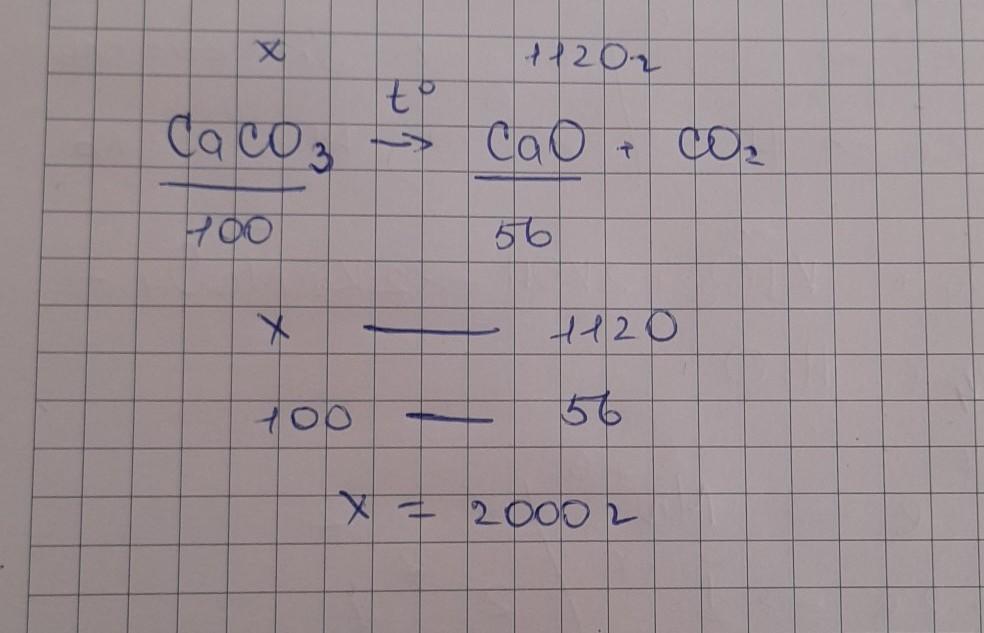 x 1120г
t°
CaCO₃ → CaO + CO₂
100 56
x — 1120
100 — 56
x = 2000г